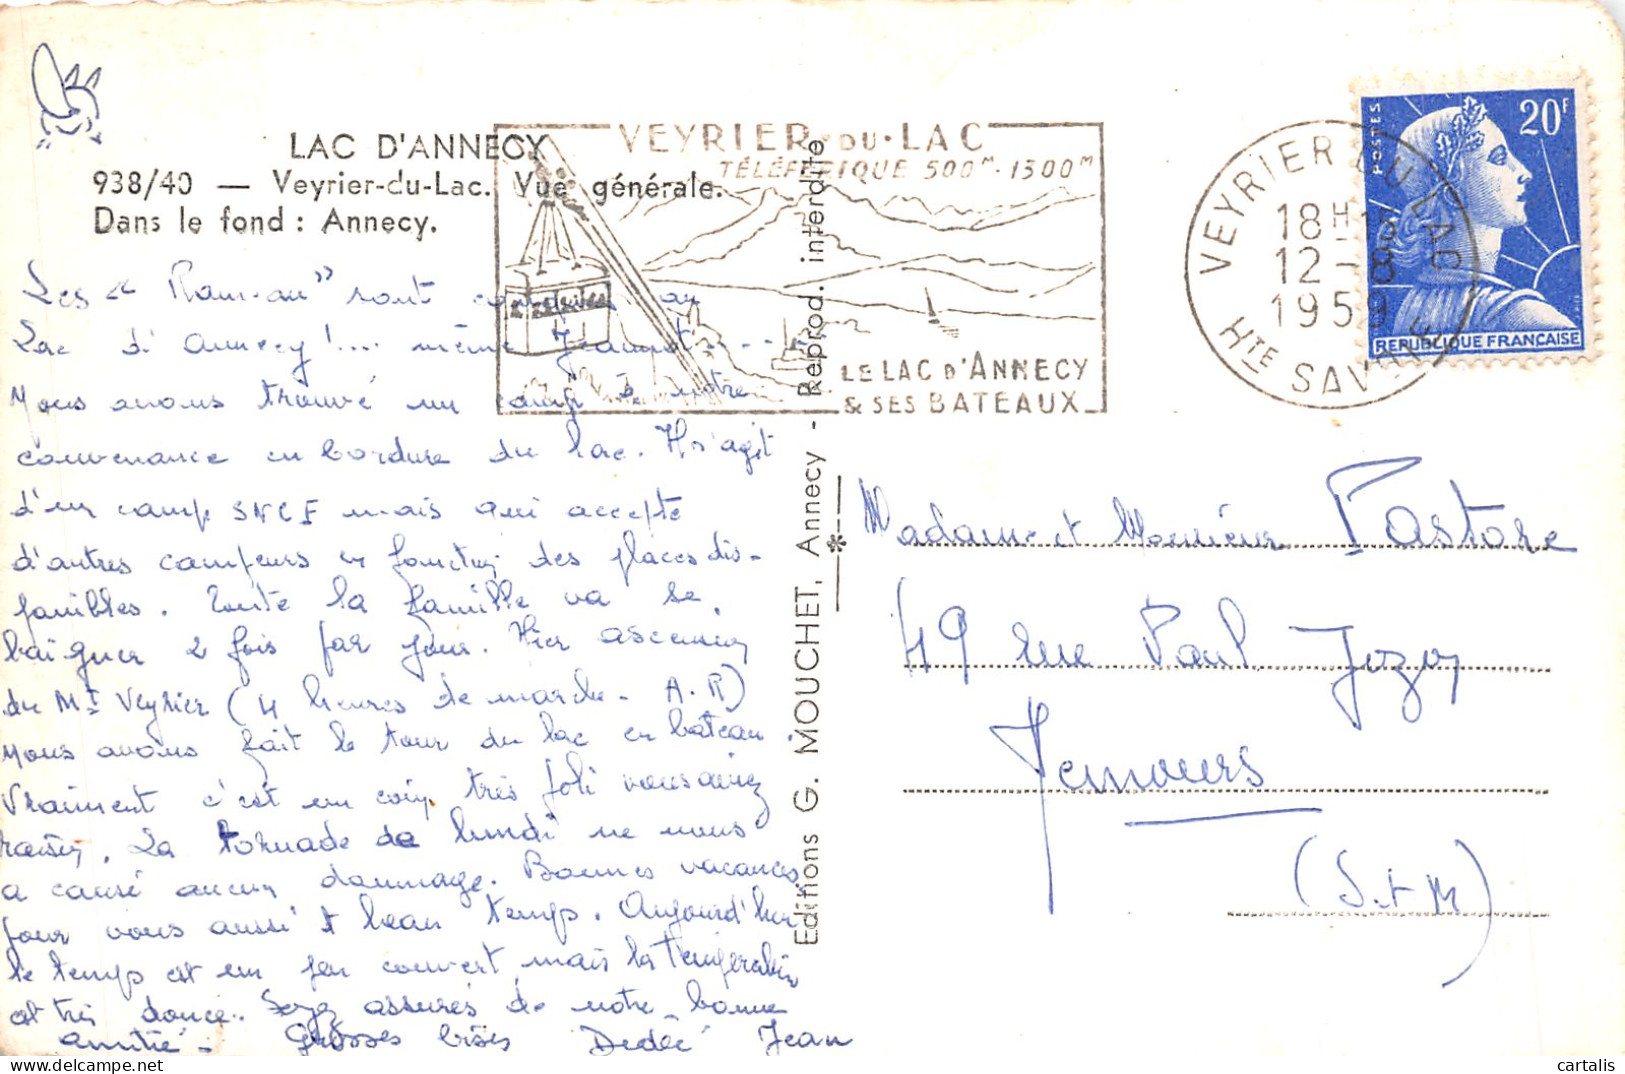 LAC D'ANNECY
938/40 — Veyrier-du-Lac. Vue générale.
Dans le fond : Annecy.
VEYRIER·DU·LAC
TÉLÉFÉRIQUE 500M·1300M
LE LAC D'ANNECY
& SES BATEAUX
VEYRIER DU LAC
18H
12-8
1959
HTE SAVOIE
POSTES
20F
REPUBLIQUE FRANÇAISE
Editions G. MOUCHET, Annecy - Reprod. interdite
Les " Rameau" sont campeurs au
Lac d'Annecy !.... même Jeannot ...
Nous avons trouvé un camp à notre
convenance en bordure du lac. Il s'agit
d'un camp SNCF mais qui accepte
d'autres campeurs en fonction des places dis-
ponibles. Toute la famille va se
baigner 2 fois par jour. Hier ascension
du Mt Veyrier (4 heures de marche - A.R)
Nous avons fait le tour du lac en bateau.
Vraiment c'est un coin très joli vous aviez
raison. La tornade de lundi ne nous
a causé aucun dommage. Bonnes vacances
pour vous aussi & beau temps. Aujourd'hui
le temps est un peu couvert mais la température
est très douce. Soyez assurés de notre bonne
amitié - Grosses bises Dédée Jean
Madame et Monsieur Pastore
49 rue Paul Jozon
Nemours
(S. et M)
cartalis
Delcampe.net